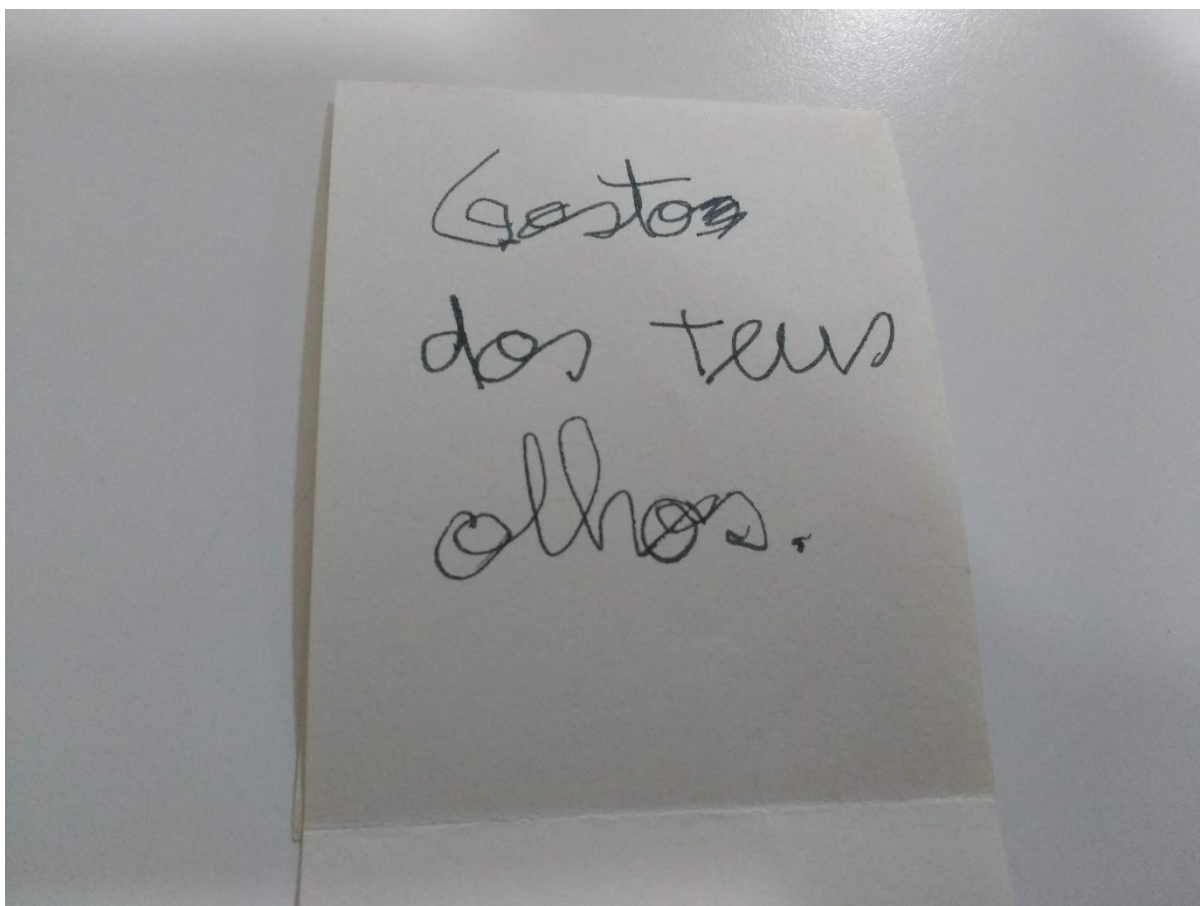 Gosto
dos teus
olhos.